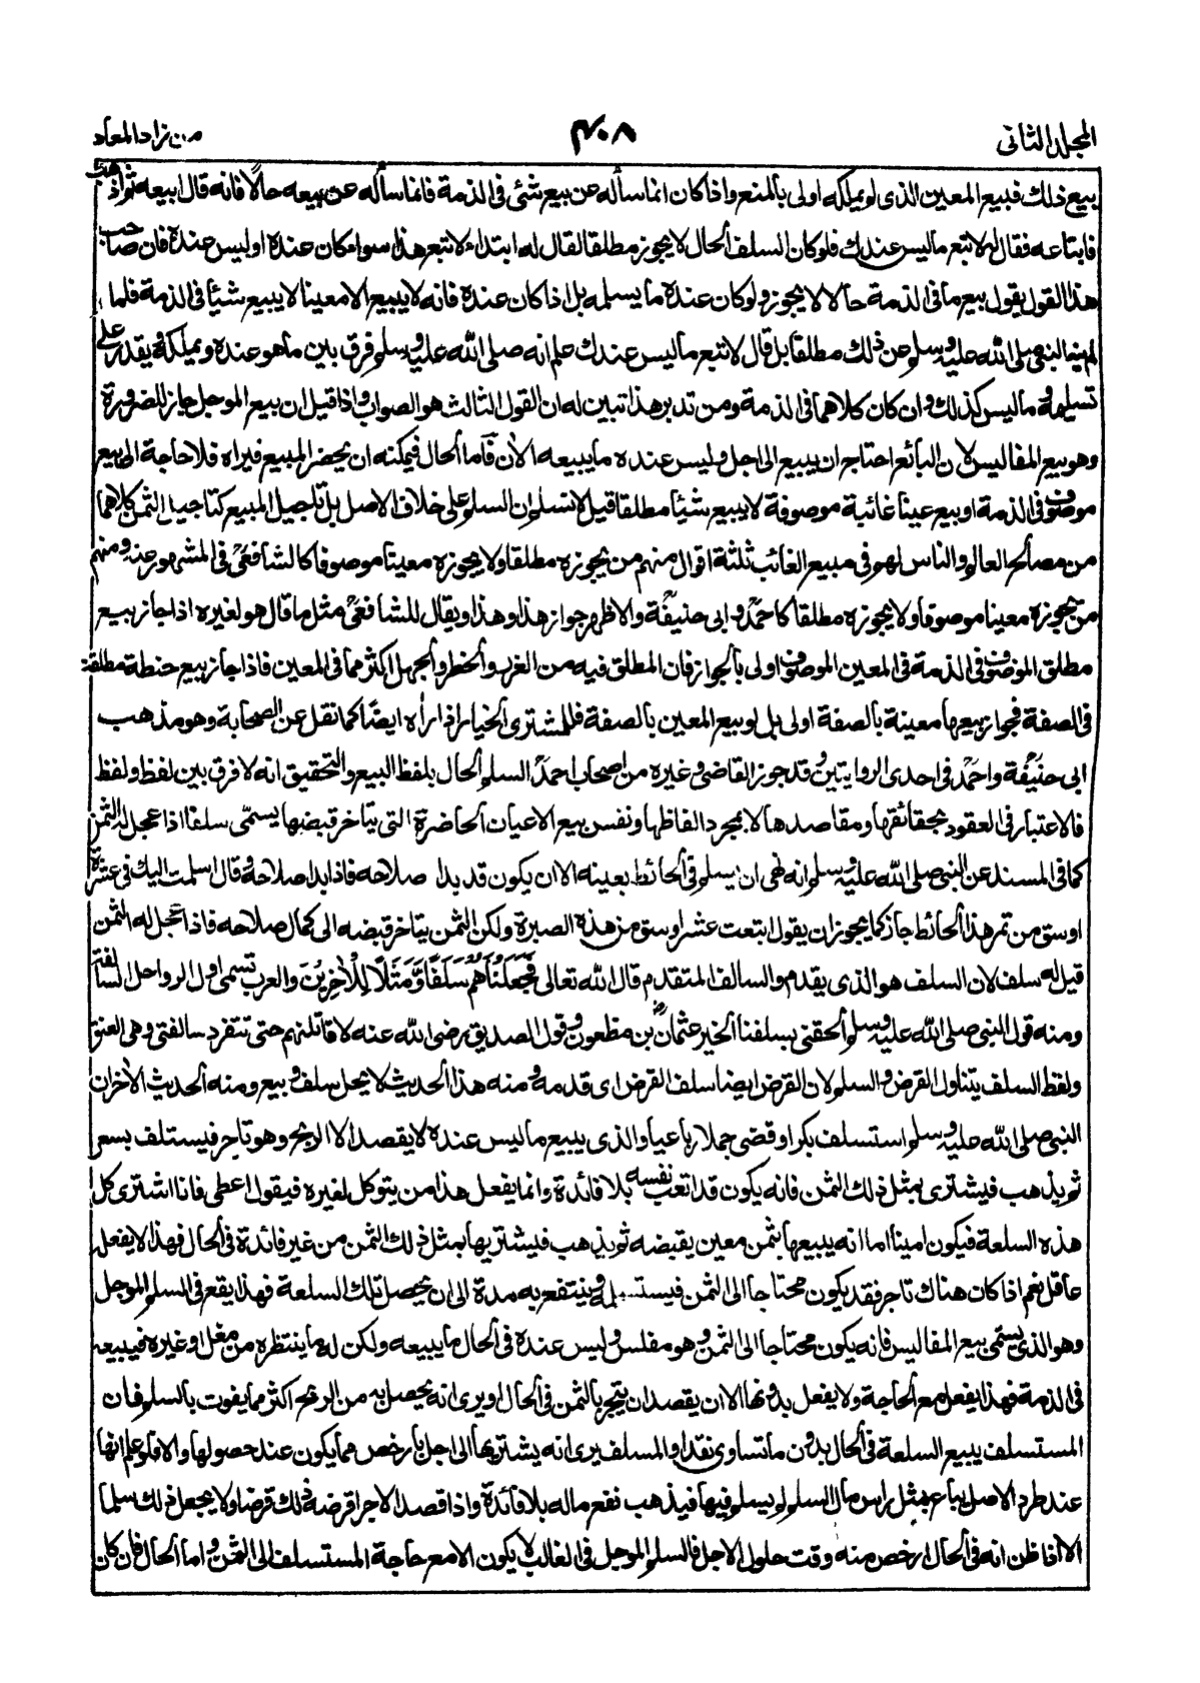 المجلد الثانى
٤٠٨
من زاد المعاد
بيع ذلك فبيع المعين الذى لم يملكه اولى بالمنع واذا كان انما سأله عن بيع شئ فى الذمة فانما سأله عن بيعه حالًا فانه قال ابيعه ثم اذهب
فابتاعه فقال له لا تبع ما ليس عندك فلو كان السلف الحال لا يجوز مطلقا لقال له ابتداء لا تبع هذا سواء كان عنده او ليس عنده فان صاحب
هذا القول يقول بيع ما فى الذمة حالا لا يجوز ولو كان عنده ما يسلمه بل اذا كان عنده فانه لا يبيع الا معينا لا يبيع شيئا فى الذمة فلما
لم ينه النبى صلى الله عليه وسلم عن ذلك مطلقا بل قال لا تبع ما ليس عندك علم انه صلى الله عليه وسلم فرق بين ما هو عنده ويملكه ويقدر على
تسليمه وما ليس كذلك وان كان كلاهما فى الذمة ومن تدبر هذا تبين له ان القول الثالث هو الصواب واذا قيل ان بيع الموجل جائز للضرورة
وهو بيع المفاليس لان البائع احتاج ان يبيع الى اجل وليس عنده ما يبيعه الآن فاما الحال فيمكنه ان يحضر المبيع فيراه فلا حاجة الى بيع
موصوف فى الذمة او بيع عينا غائبة موصوفة لا يبيع شيئا مطلقا قيل لا نسلم ان السلم على خلاف الاصل بل تاجيل المبيع كتاجيل الثمن كلاهما
من مصالح العالم والناس لهم فى مبيع الغائب ثلثة اقوال منهم من يجوزه مطلقا ولا يجوزه معينا موصوفا كالشافعى فى المشهور عنه ومنهم
من يجوزه معينا موصوفا ولا يجوزه مطلقا كاحمد وابى حنيفة والاظهر جواز هذا وهذا ويقال للشافعى مثل ما قال هو لغيره اذا جاز بيع
مطلق الموصوف فى الذمة فى المعين الموصوف اولى بالجواز فان المطلق فيه من الغرر والخطر والجهل اكثر مما فى المعين فاذا جاز بيع حنطة مطلقة
فى الصفة فجواز بيعها معينة بالصفة اولى بل لو بيع المعين بالصفة فللمشترى الخيار اذا رأه ايضًا كما نقل عن الصحابة وهو مذهب
ابى حنيفة واحمد فى احدى الروايتين وقد جوز القاضى وغيره من اصحاب احمد السلم الحال بلفظ البيع والتحقيق انه لا فرق بين لفظ ولفظ
فالاعتبار فى العقود بحقائقها ومقاصدها لا بمجرد الفاظها ونفس بيع الاعيان الحاضرة التى يتاخر قبضها يسمى سلفا اذا عجل له الثمن
كما فى المسند عن النبى صلى الله عليه وسلم انه نهى ان يسلم فى الحائط بعينه الا ان يكون قد بدا صلاحه فاذا بدا صلاحه وقال اسلمت اليك فى عشرة
اوسق من تمر هذا الحائط جاز كما يجوز ان يقول ابتعت عشر اوسق من هذه الصبرة ولكن الثمن يتاخر قبضه الى كمال صلاحه فاذا عجل له الثمن
قيل له سلف لان السلف هو الذى يقدم والسالف المتقدم قال الله تعالى فَجَعَلْنَاهُمْ سَلَفًا وَّمَثَلًا لِّلْاٰخِرِيْنَ والعرب تسمى اول الرواحل السالفة
ومنه قول النبى صلى الله عليه وسلم الحقنى بسلفنا الخير عثمان بن مظعون وقول الصديق رضى الله عنه لاقاتلنهم حتى تنفرد سالفتى وهى العنق
ولفظ السلف يتناول القرض والسلم لان القرض ايضا سلف القرض اى قدمه ومنه هذا الحديث لا يحل سلف وبيع ومنه الحديث الاخر ان
النبى صلى الله عليه وسلم استسلف بكرا وقضى جملا رباعيا والذى يبيع ما ليس عنده لا يقصد الا الربح وهو تاجر فيستلف بسعر
ثم يذهب فيشترى بمثل ذلك الثمن فانه يكون قد اتعب نفسه بلا فائدة وانما يفعل هذا من يتوكل لغيره فيقول اعطى فانا اشترى كل
هذه السلعة فيكون امينا اما انه يبيعها بثمن معين يقبضه ثم يذهب فيشتريها بمثل ذلك الثمن من غير فائدة فى الحال فهذا لا يفعله
عاقل نعم اذا كان هناك تاجر فقد يكون محتاجا الى الثمن وينتفع به مدة الى ان يحصل تلك السلعة فهذا يقع فى السلم الموجل
وهو الذى يسمى بيع المفاليس فانه يكون محتاجا الى الثمن وهو مفلس وليس عنده فى الحال ما يبيعه ولكن له ما ينتظره من مغل او غيره فيبيعه
فى الذمة فهذا يفعل مع الحاجة ولا يفعل بدونها الا ان يقصد ان يتجر بالثمن فى الحال او يرى انه يحصل به من الربح اكثر مما يفوت بالسلم فان
المستسلف يبيع السلعة فى الحال بدون ما تساوى نقدا والمسلف يرى انه يشتريها الى اجل بارخص مما يكون عند حصولها والا فلو علم انها
عند طرد الاصل يباع بمثل راس مال السلم لم يسلم فيها فيذهب نفع ماله بلا فائدة واذا قصد الاجر اقرضه ذلك قرضا ولا يجعل ذلك سلما
الا اذا ظن انه فى الحال ارخص منه وقت حلول الاجل فالسلم الموجل فى الغالب لا يكون الا مع حاجة المستسلف الى الثمن واما الحال فان كان